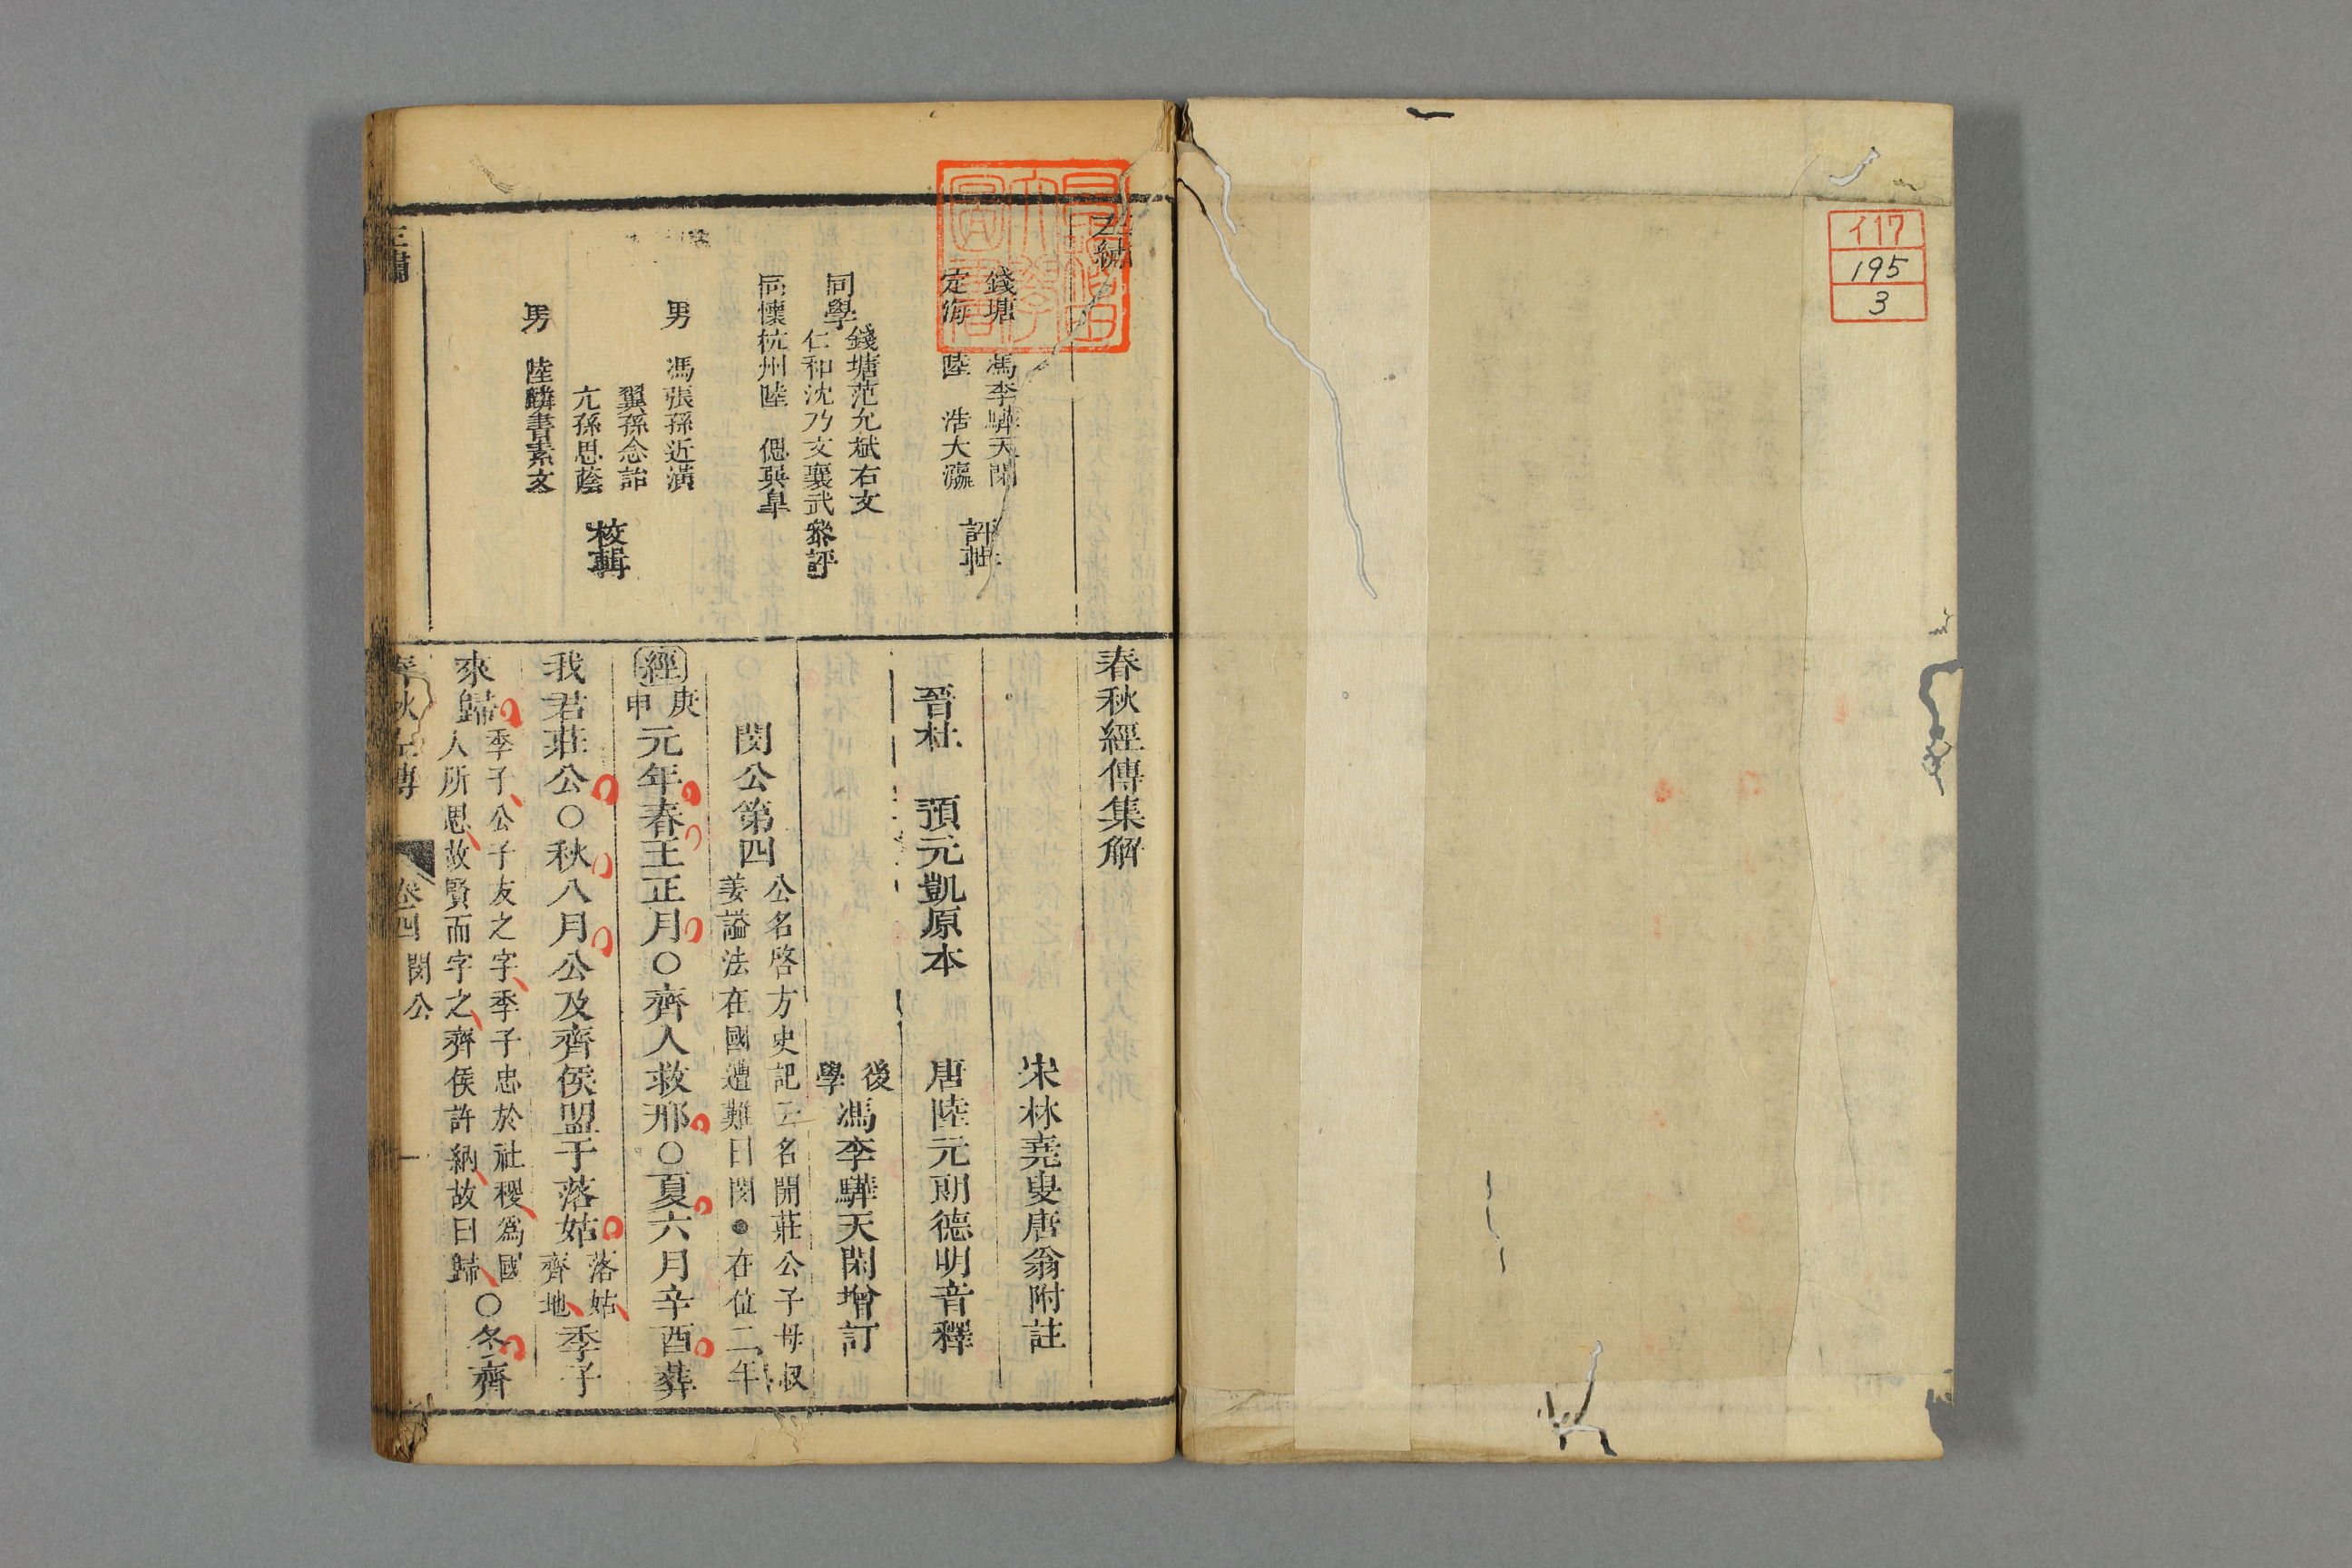 イ17
195
3
左繡
錢塘 馮李驊天閑
定海 陸 浩大瀛
評輯
同學
錢塘范允斌右文
仁和沈乃文襄武
參評
同懷杭州陸 偲巽皐
男 馮張孫近潢
翼孫念詒
亢孫思蔭
男 陸麟書素文
校輯
春秋經傳集解
宋林堯叟唐翁附註
晉杜 預元凱原本
唐陸元朗德明音釋
後學馮李驊天閑增訂
閔公第四
公名啓方史記云名開莊公子母叔
姜諡法在國遭難曰閔●在位二年
經 庚申 元年春王正月○齊人救邢○夏六月辛酉葬
我君莊公○秋八月公及齊侯盟于落姑 落姑齊地 季子
來歸 季子公子友之字季子忠於社稷爲國
人所思故賢而字之齊侯許納故曰歸 ○冬齊
春秋左傳 卷四 閔公 一